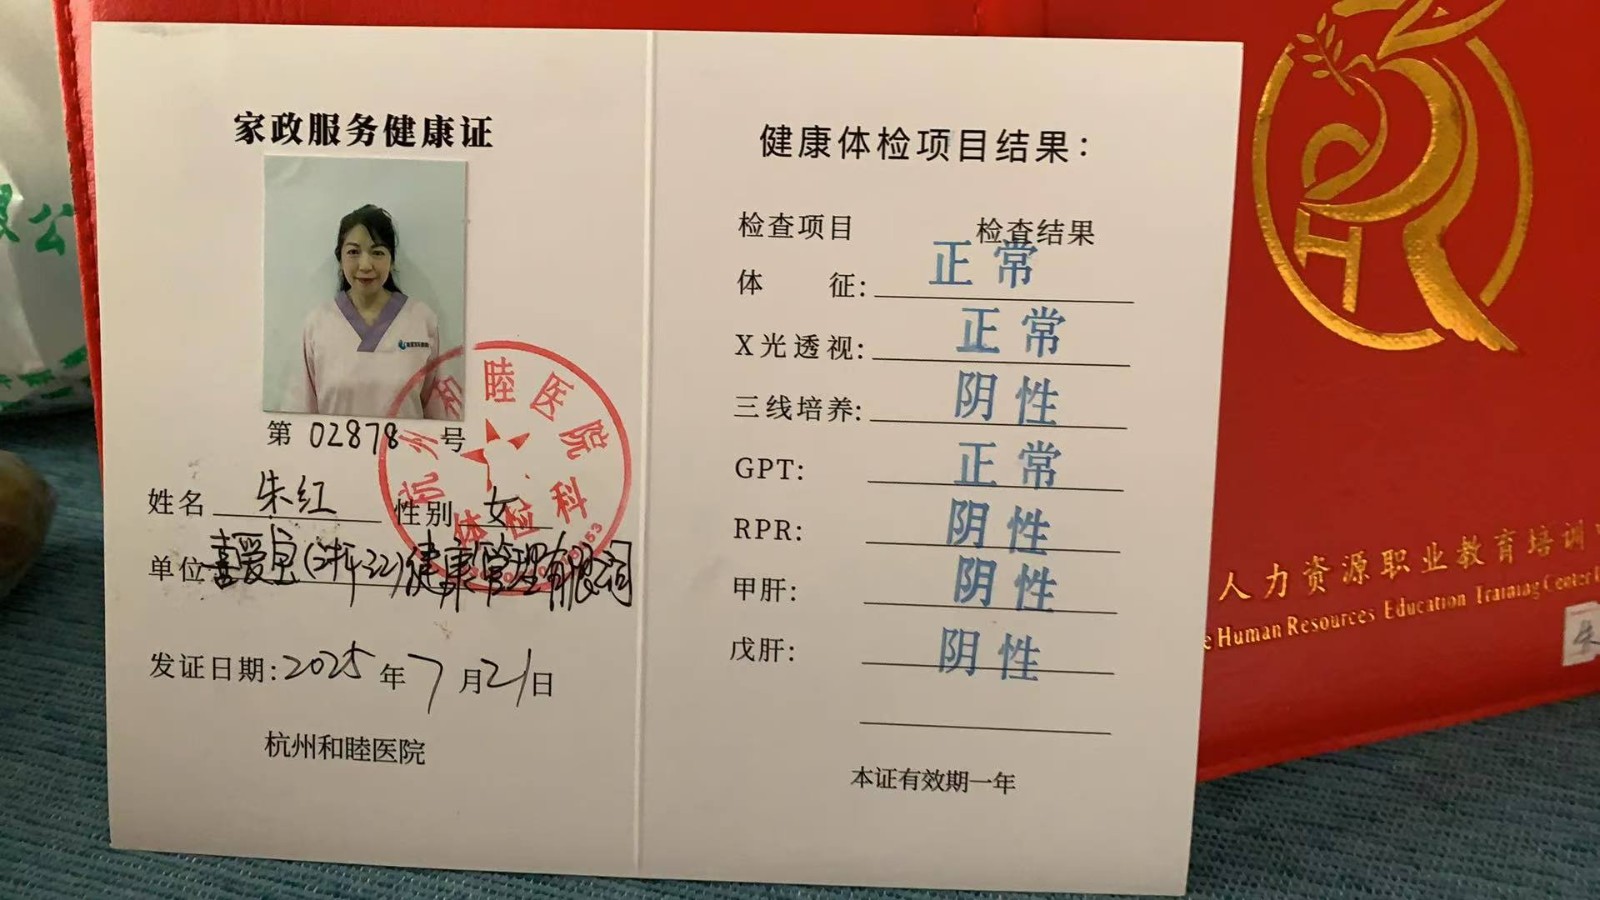 家政服务健康证
第 02878 号
姓名 朱红 性别 女
单位 喜爱宝()健康管理有限公司
发证日期:2025年7月21日
杭州和睦医院
杭州和睦医院
体检科
健康体检项目结果:
检查项目 检查结果
体 征: 正常
X光透视: 正常
三线培养: 阴性
GPT: 正常
RPR: 阴性
甲肝: 阴性
戊肝: 阴性
本证有效期一年
人力资源职业教育培训
Human Resources Education Training Center
朱
限公